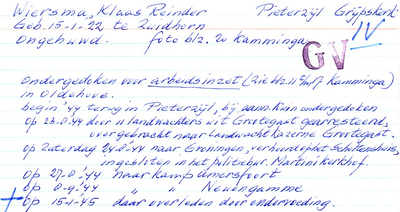 Wiersma, Klaas Reinder Pieterzijl Grijpskerk
Geb. 15-1-22 te Zuidhorn IV
Ongehuwd. foto blz. 20 Kamminga
GV
ondergedoken voor arbeidsinzet (zie blz. 115 Kamminga)
in Oldehove.
begin '44 terug in Pieterzijl, bij aann. Kuin ondergedoken
op 23-8-'44 door landwachters uit Grootegast gearresteerd,
overgebracht naar landwacht kazerne Grootegast.
op Zaterdag naar Groningen, verhoord op het Scholtenshuis,
ingesloten in het politieburo Martinikerkhof.
op naar kamp Amersfoort
op " " Neuengamme
+ op 15-1-45 daar overleden door ondervoeding.